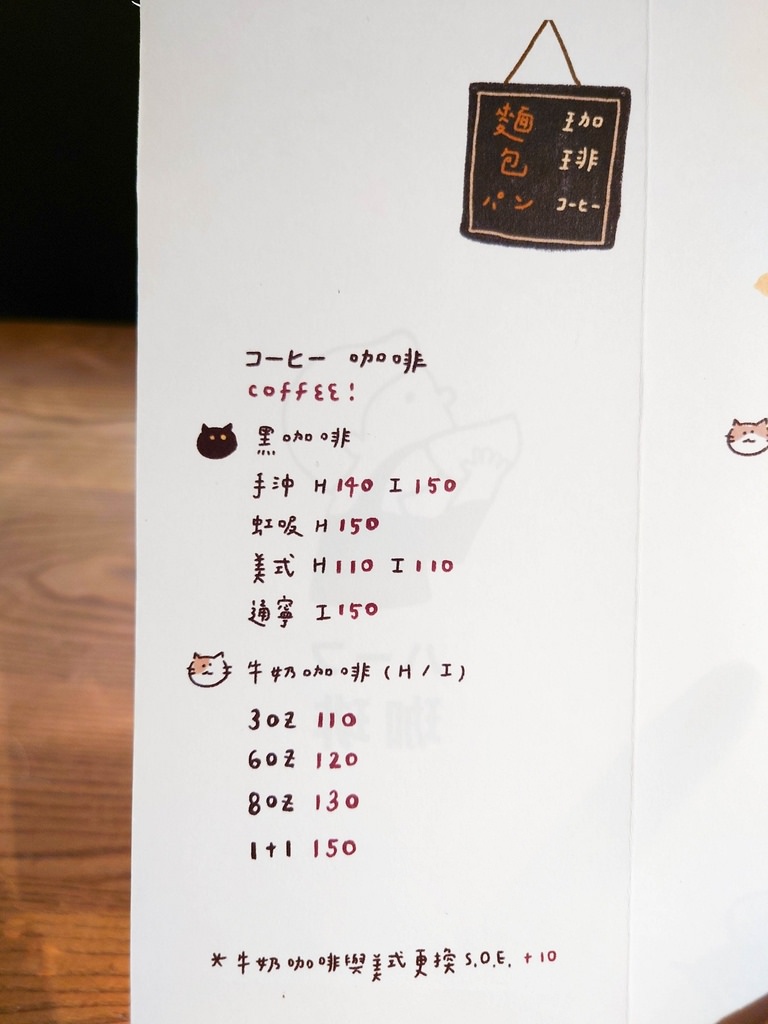 麵包パン
珈琲コーヒー
コーヒー 咖啡
coffee!
黑咖啡
手沖 H 140 I 150
虹吸 H 150
美式 H 110 I 110
通寧 I 150
牛奶咖啡 (H / I)
3oz 110
6oz 120
8oz 130
1+1 150
* 牛奶咖啡與美式更換 S.O.E. +10